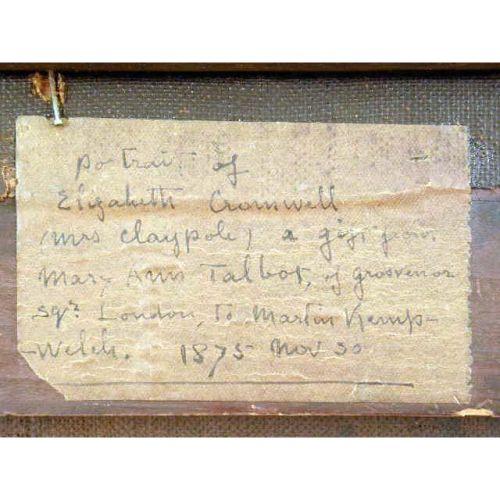 portrait of
Elizabeth Cromwell
(Mrs Claypole) a gift from
Mary Ann Talbot, of Grosvenor
Sqr. London, to Martin Kemp-
-Welch. 1875 Nov 30